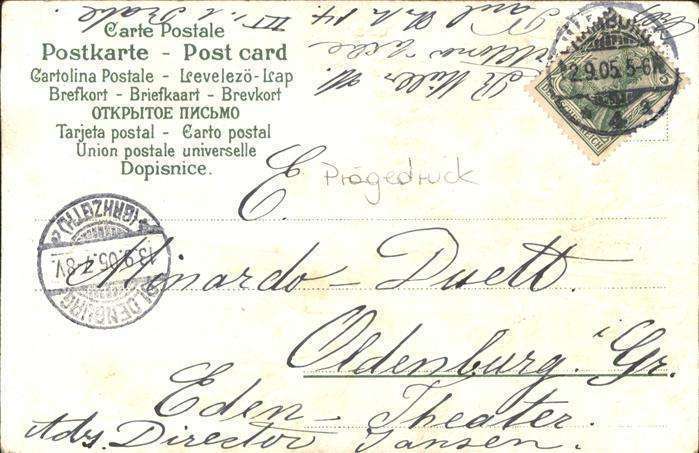 Carte Postale
Postkarte - Post card
Cartolina Postale - Levelezö-Lap
Brefkort - Briefkaart - Brevkort
ОТКРЫТОЕ ПИСЬМО
Tarjeta postal - Carto postal
Union postale universelle
Dopisnice.
12.9.05. 5-6N.
Prägedruck
E.
(GRHZGTH.)
13.9.05. 7-8V.
OLDENBURG
Rinardo - Duett.
Oldenburg i/Gr.
Eden - Theater.
Adr. Director Jansen.